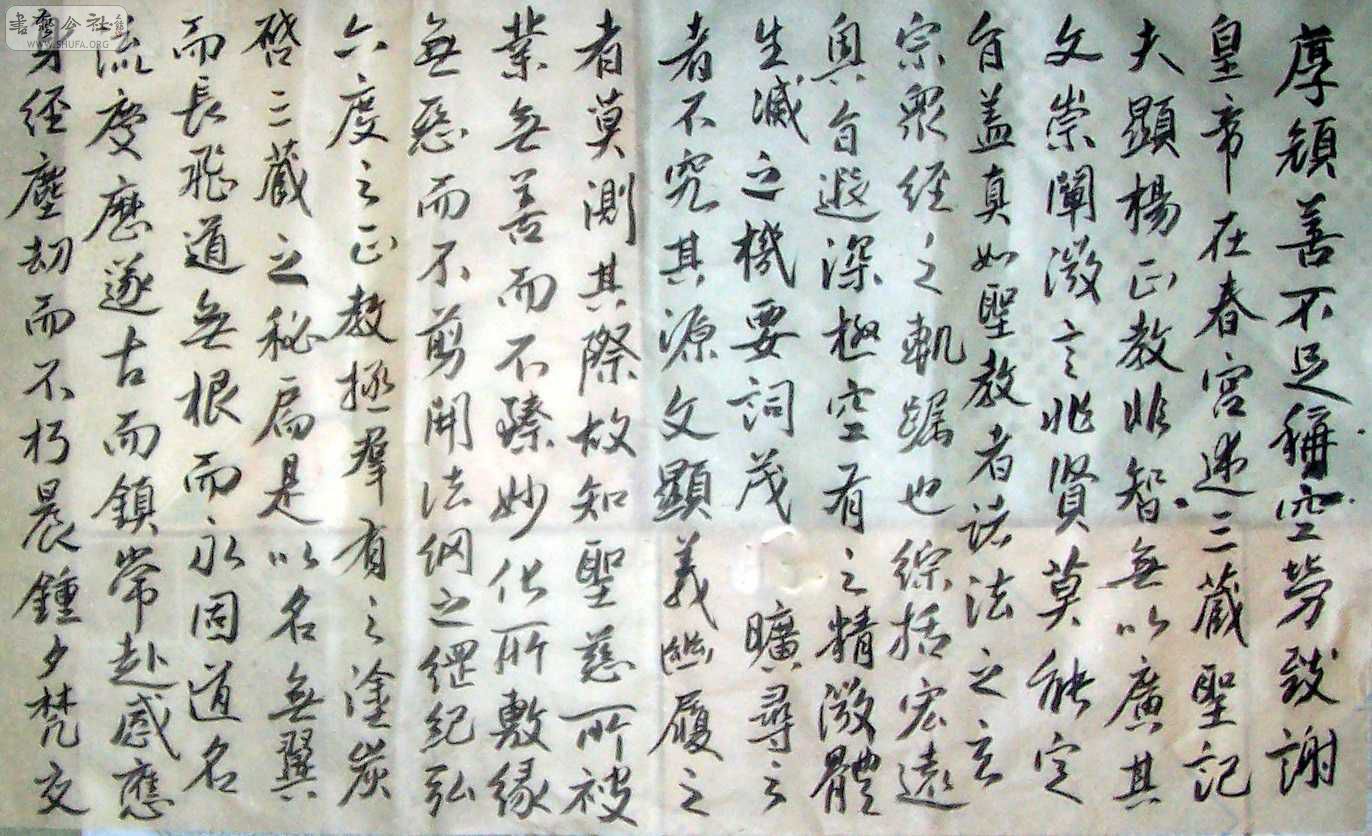 厚顔善不足稱空勞致謝
皇帝在春宮述三藏聖記
夫顯楊正教非智無以廣其
文崇闡微言非賢莫能定
旨蓋真如聖教者諸法之玄
宗衆經之軌躅也綜括宏遠
奧旨遐深極空有之精微體
生滅之機要詞茂曠尋之
者不究其源文顯義幽履之
者莫測其際故知聖慈所被
業無善而不臻妙化所敷緣
無惡而不剪開法網之綱紀弘
六度之正教拯羣有之塗炭
啓三藏之秘扃是以名無翼
而長飛道無根而永固道名
流慶歷遂古而鎮常赴感應
身經塵劫而不朽晨鍾夕梵交
書藝公社
WWW.SHUFA.ORG